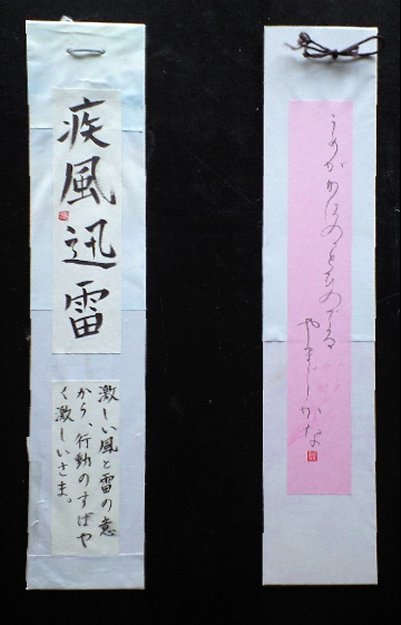 疾風迅雷
激しい風と雷の意
から、行動のすばや
く激しいさま。
うめがかにのつとひのでる
やまじかな